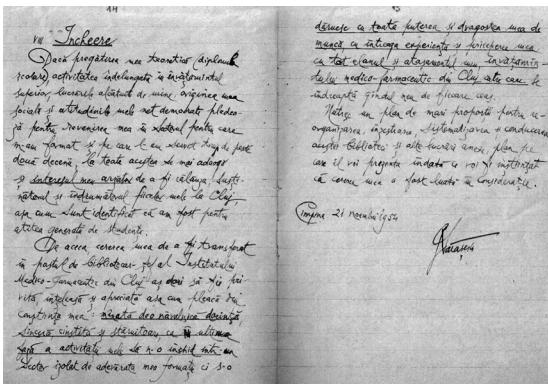 14
VII Încheere
Dacă pregătirea mea teoretică (diplomele
școlare) activitatea îndelungată în învățământul
superior, lucrările alăturate de mine, originea mea
socială și atitudinile mele net democrate pledea-
ză pentru revenirea mea în sectorul pentru care
m-am format și pe care l-am servit timp de peste
două decenii, la toate acestea se mai adaogă
și interesul meu arzător de a fi călăuza, susți-
nătorul și îndrumătorul fiicelor mele la Cluj,
așa cum sunt identificat că am fost pentru
atâtea generații de studenți.
De aceea cererea mea de a fi transferat
în postul de bibliotecar-șef al Institutului
Medico-Farmaceutic din Cluj aș dori să fie pri-
vită, înțeleasă și apreciată așa cum pleacă din
conștiința mea: mânată de o năvalnică dorință,
sinceră, cinstită și stăruitoare, ca în ultima
fază a activității mele să n-o închid într-un
sector izolat de adevărata mea formație ci s-o
15
dăruesc cu toată puterea și dragostea mea de
muncă, cu întreaga experiență și priceperea mea
cu tot elanul și atașamentul meu învățămân-
tului medico-farmaceutic din Cluj către care se
îndreaptă gândul meu de fiecare ceas.
Nutresc un plan de mari proporții pentru re-
organizarea, înzestrarea, sistematizarea și conducerea
acestei biblioteci și este lucrării anexe, plan pe
care îl voi prezenta îndată ce voi fi înștiințat
că cererea mea a fost luată în considerație.
Câmpina 21 noembrie 1954